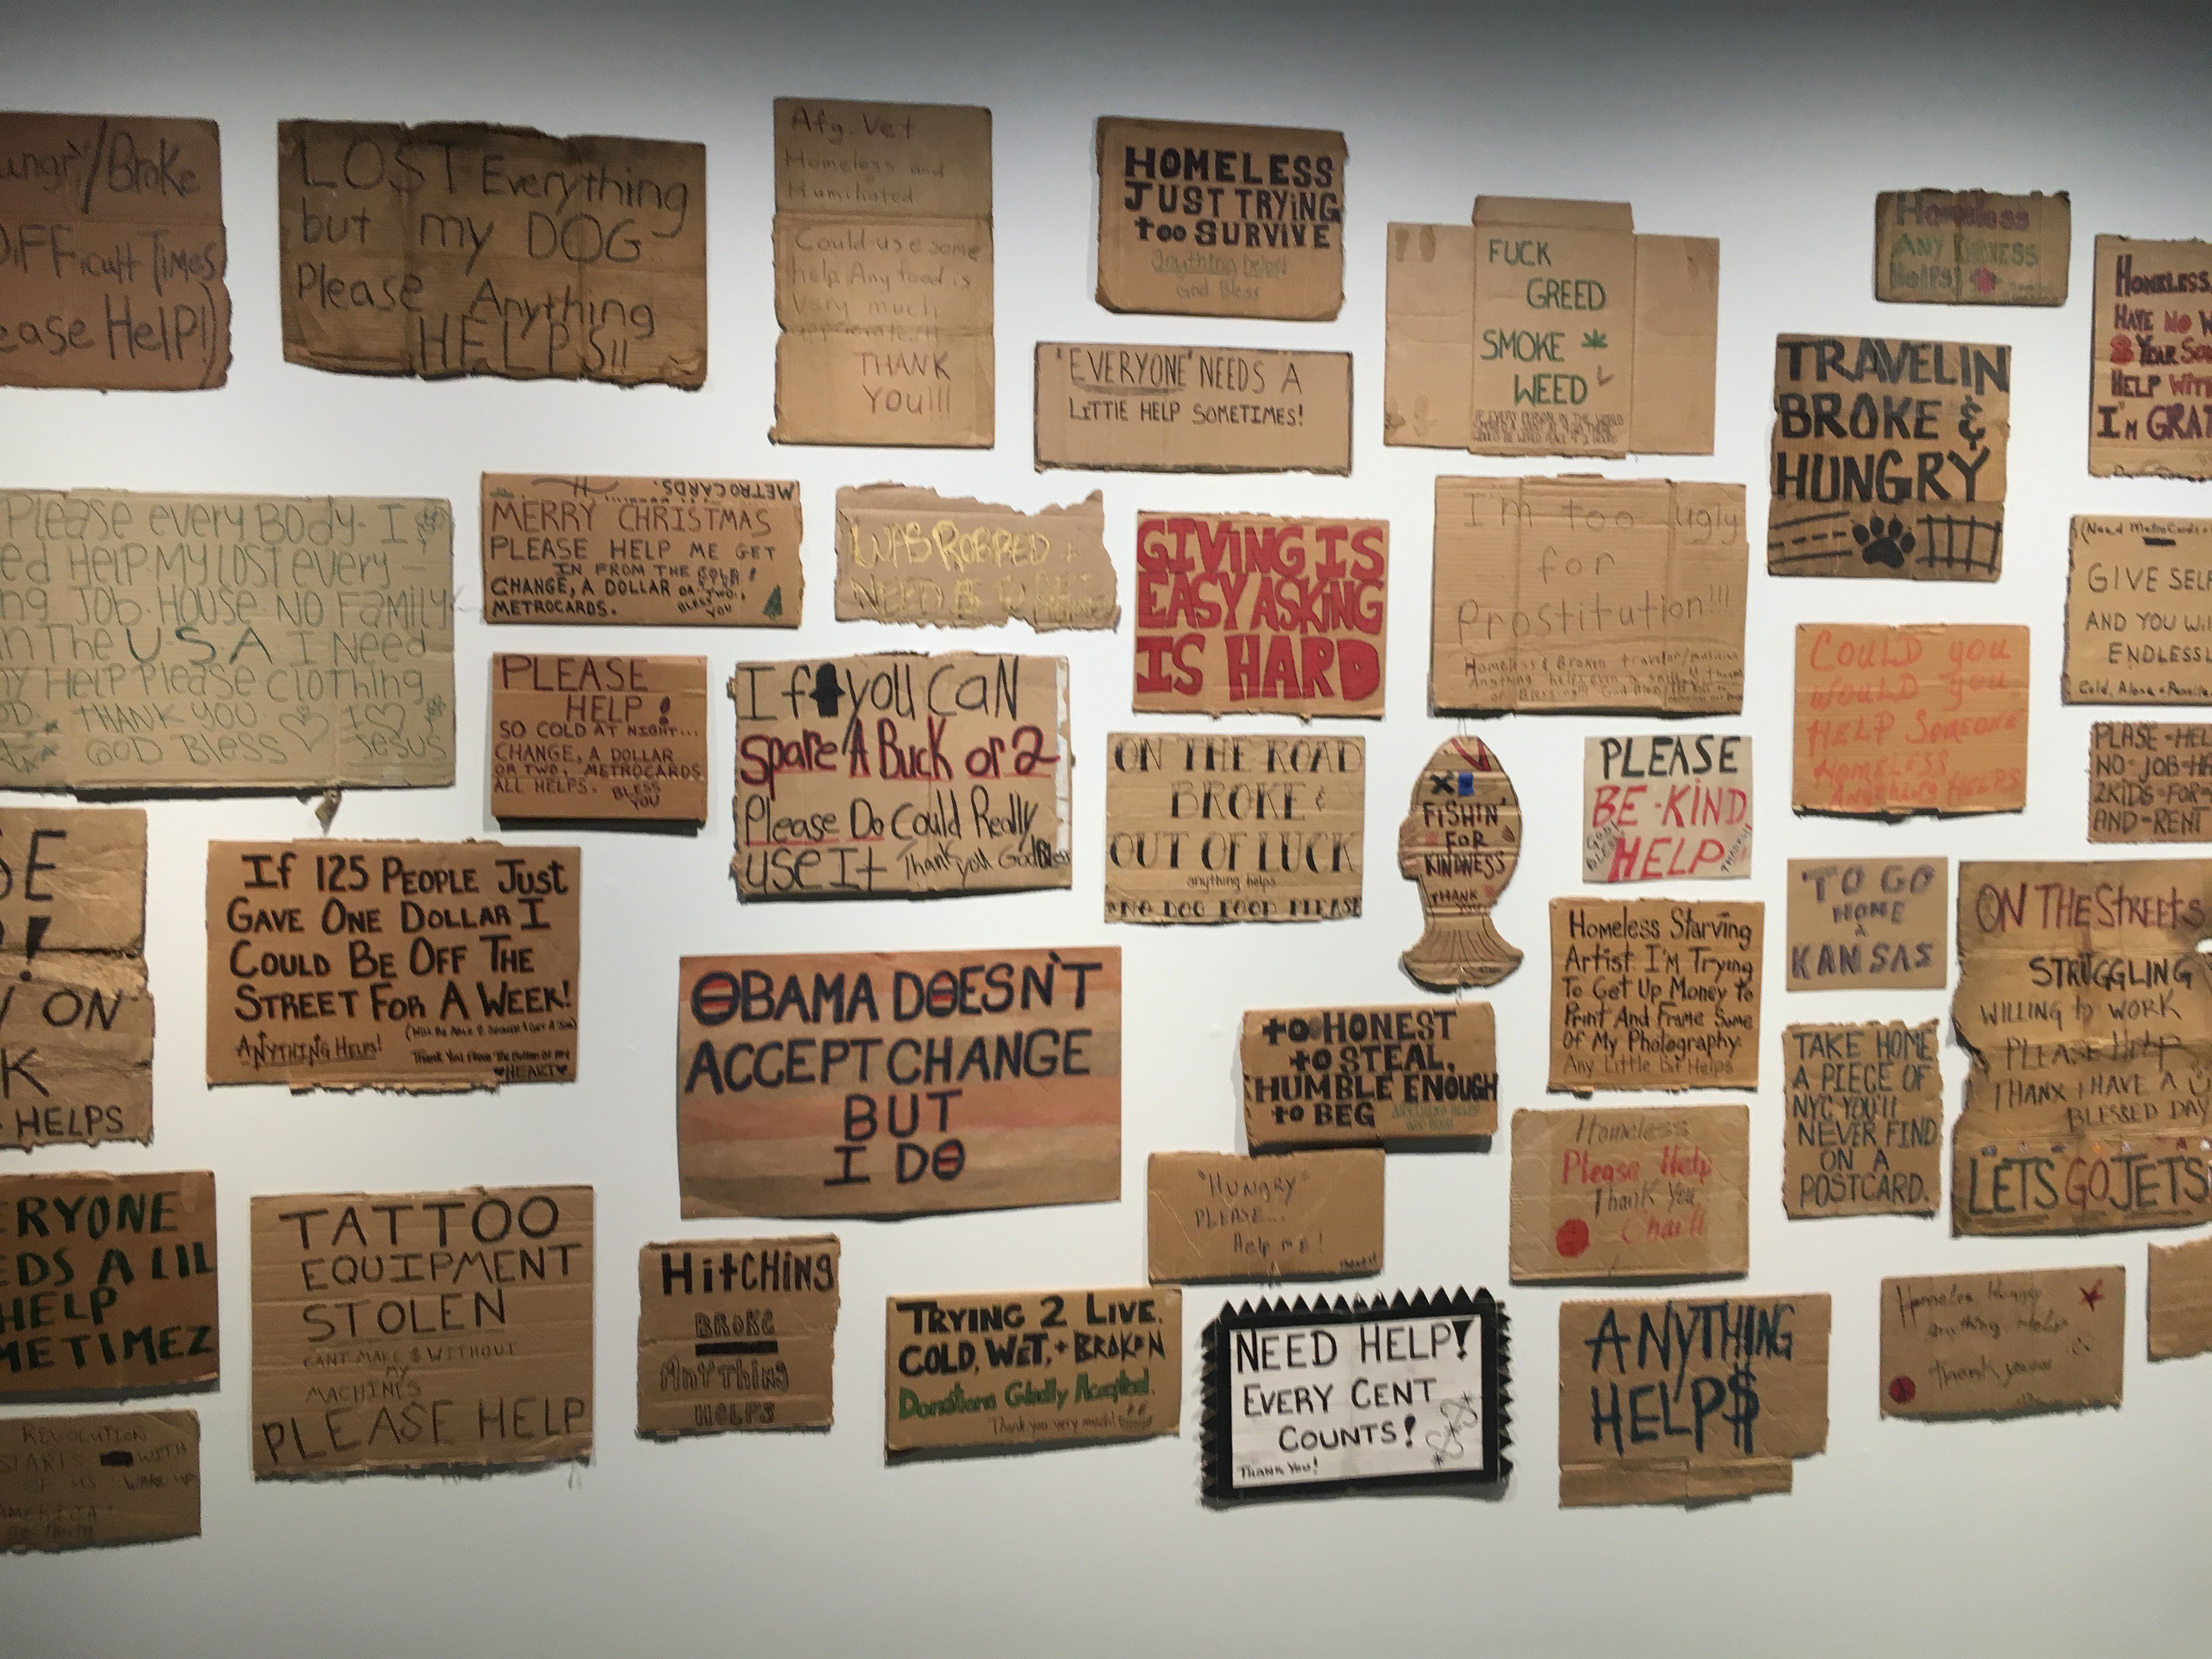 ungry/Broke
DiFFicult Times
ease Help!)
LOST Everything
but my DOG
Please Anything
HELPS!!
Afg. Vet
Homeless and
Humiliated
Could use some
help Any food is
very much
THANK
YOU!!!
HOMELESS
JUST TRYiNG
too SURViVE
anything helps!
God Bless
'EVERYONE' NEEDS A
LITTlE HELP SOMETIMES!
FUCK
GREED
SMOKE
WEED
Homeless
ANY KINDNESS
Helps!
HOMELESS,
HAVE NO W
8 YEAR SO
HELP WITH
I'M GRAT
TRAVELIN
BROKE &
HUNGRY
Please every BODY. I
ed Help My LOST every-
ng JOB. HOUSE NO FaMily
n The U.S.A I Need
ny Help Please clothing
THANK YOU.
GOD Bless
I
Jesus
METROCARDS.
MERRY CHRISTMAS
PLEASE HELP ME GET
IN FROM THE COLD!
CHANGE, A DOLLAR OR TWO,
METROCARDS.
BLESS
YOU
WAS ROBBED +
NEED $ TO
GIVING IS
EASY ASKING
IS HARD
I'm too ugly
for
Prostitution!!!
Homeless & Broken traveler/musician
Anything helps even a smile
(Need MetroCards
GIVE SELF
AND YOU Will
ENDLESSL
Cold, Alone +
PLEASE
HELP!
SO COLD AT NIGHT...
CHANGE, A DOLLAR
OR TWO, METROCARDS
ALL HELPS. BLESS
YOU
If you CaN
Spare A Buck or 2
Please Do Could Really
use It Thank you God Bless
ON THE ROAD
BROKE &
OUT OF LUCK
anything helps
*NO DOG FOOD PLEASE
FiSHIN'
FOR
KINDNESS
THANK
PLEASE
BE-KiND
HELP
GOD
BLESS
COULD you
WOULD YOU
HELP SOMEONE
HOMELESS
ANYTHING HELPS
PLASE-HEL
NO-JOB-HA
2KIDS-FOR
AND-RENT
E
!
ON
K
HELPS
If 125 PEOPLE JUST
GAVE ONE DOLLAR I
COULD BE OFF THE
STREET FOR A WEEK!
ANYTHING HELPS!
Thank You From The Bottom Of My
HEART
OBAMA DOESN'T
ACCEPT CHANGE
BUT
I DO
to HONEST
to STEAL,
HUMBLE ENOUGH
to BEG
ANYTHING HELPS
GOD BLESS
Homeless Starving
Artist. I'M Trying
To Get Up Money To
Print And Frame Some
Of My Photography.
Any Little Bit Helps
TO GO
HOME
2
KANSAS
ON THE STreets
STRUGGLING
WILLING to WORK
PLEASE Help
THANX & HAVE A
BLESSED DAY
LETS GO JETS
TAKE HOME
A PIECE OF
NYC YOU'll
NEVER FIND
ON A
POSTCARD.
ERYONE
EDS A LIL
HELP
METIMEZ
TATTOO
EQUIPMENT
STOLEN
CANT MAKE $ WITHOUT
MY
MACHINES
PLEASE HELP
HitCHiNG
BROKE
ANYTHING
HELPS
"HUNGRY"
PLEASE...
Help me!
Homeless
Please Help
Thank You
TRYING 2 LIVE.
COLD, WET, + BROKEN
Donations Gladly Accepted.
Thank you very much!
NEED HELP!
EVERY CENT
COUNTS!
THANK YOU!
ANYTHING
HELP$
Homeless Hungry
anything helps
REVOLUTION
STARTS WITH
OF US WAKE UP
AMERICA